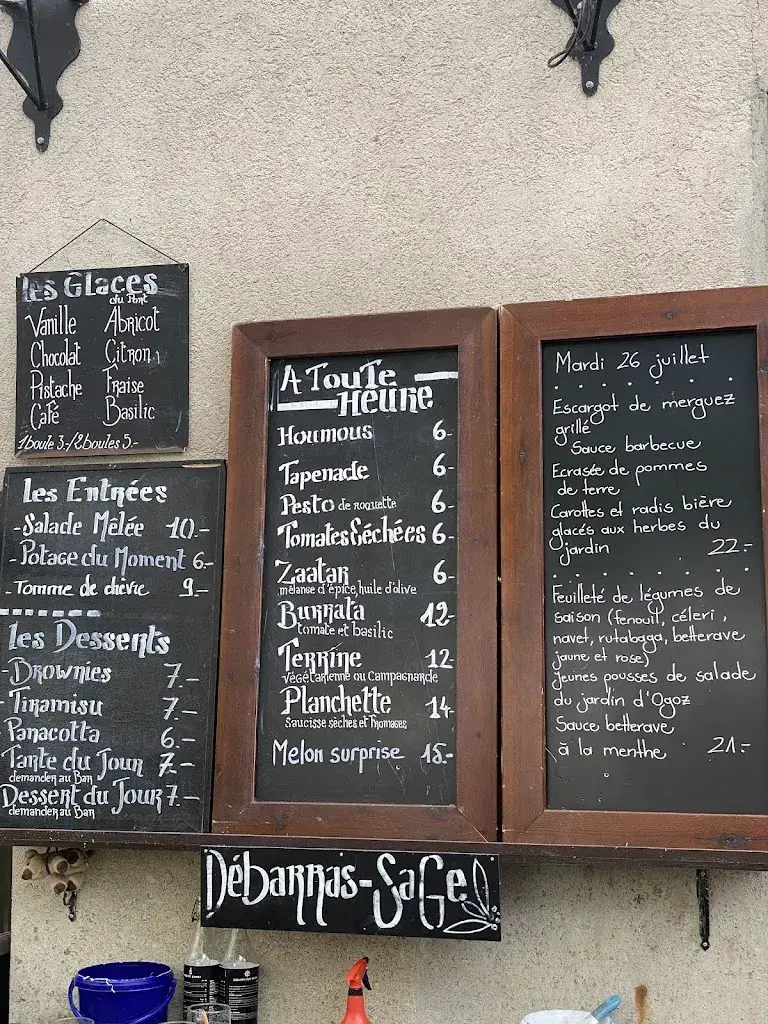 les Glaces
du Pont
Vanille Abricot
Chocolat Citron
Pistache Fraise
Café Basilic
1 boule 3.-/2 boules 5.-
les Entrées
- Salade Mêlée 10.-
- Potage du Moment 6.-
- Tomme de chèvre 9.-
les Desserts
- Brownies 7.-
- Tiramisu 7.-
- Panacotta 6.-
- Tarte du Jour 7.-
demander au Bar
- Dessert du Jour 7.-
demander au Bar
A Toute
Heure
Houmous 6.-
Tapenade 6.-
Pesto de roquette 6.-
Tomates Séchées 6.-
Zaatar 6.-
mélance d'épice, huile d'olive
Burrata 12.-
tomate et basilic
Terrine 12.-
végétarienne ou Campagnarde
Planchette 14.-
Saucisse sèches et fromages
Melon surprise 15.-
Mardi 26 juillet
Escargot de merguez
grillé
Sauce barbecue
Ecrasée de pommes
de terre
Carottes et radis bière
glacés aux herbes du
jardin 22.-
Feuilleté de légumes de
saison (fenouil, céleri,
navet, rutabaga, betterave
jaune et rose)
Jeunes pousses de salade
du jardin d'Ogoz
Sauce betterave
à la menthe 21.-
Débarras-SaGe